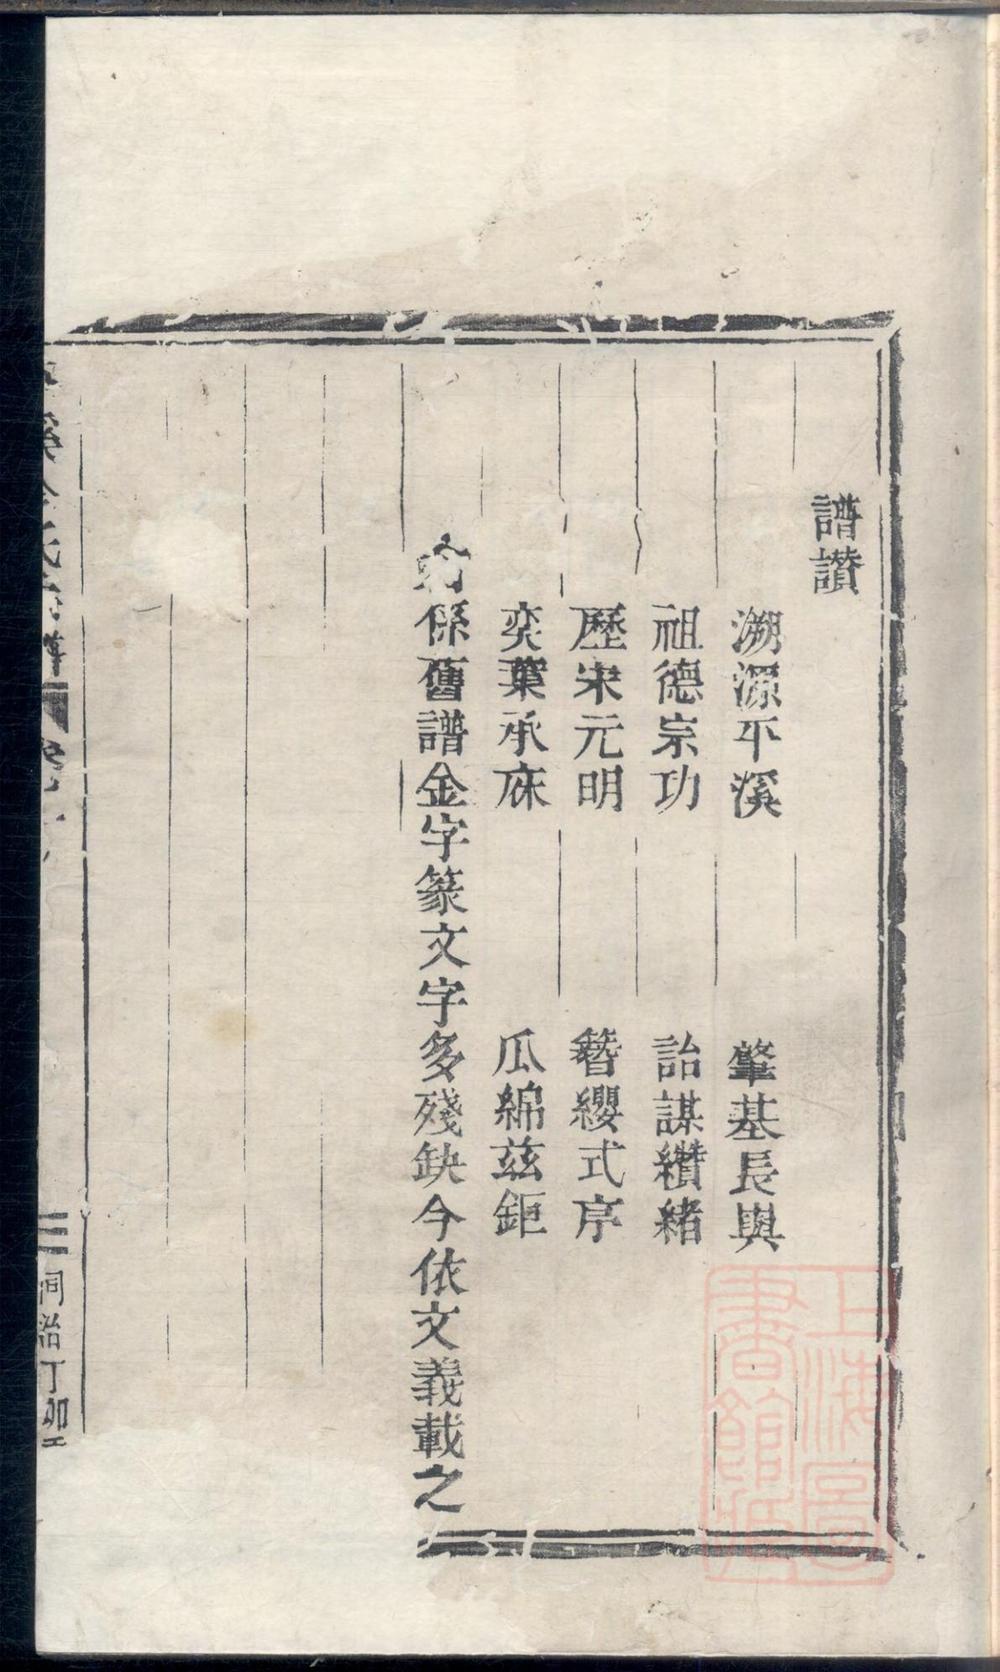 譜讃
溯源平溪 肇基長與
祖德宗功 詒謀纘緒
歷宋元明 簪纓式序
奕葉承庥 瓜綿茲鉅
係舊譜金字篆文字多殘缺今依文義載之
溪金氏宗譜 卷一 三 同治丁卯
上海圖書館藏